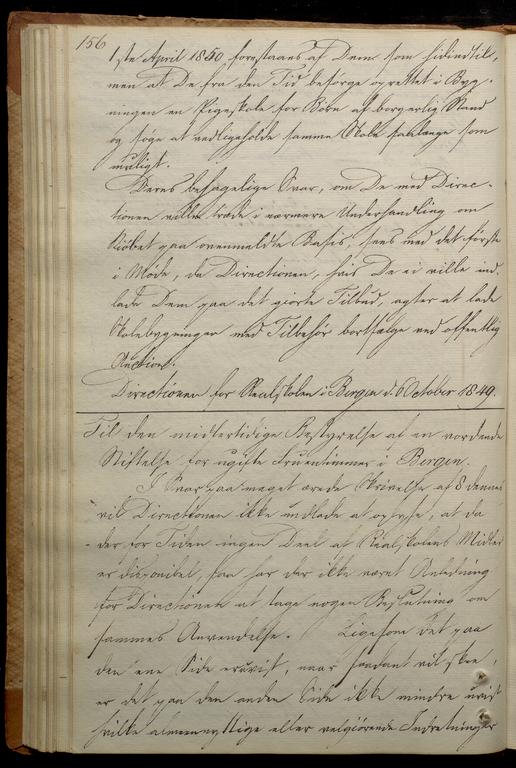 156
1ste April 1850 forestaaes af Dem som hidindtil,
men at De fra den Tid besørge oprettet i Byg-
ningen en Pigeskole for Børn af borgerlig Stand
og søge at vedligeholde samme Skole saalænge som
muligt.
Deres behagelige Svar, om De med Direc-
tionen ville træde i nærmere Underhandling om
Kiøbet paa ovenmeldte Basis, sees med det første
i Møde, da Directionen, hvis De ei ville ind-
lade Dem paa det giorte Tilbud, agter at lade
Skolebygningen med Tilbehør bortsælge ved offentlig
Auction.
Directionen for Realskolen i Bergen d. 6 October 1849.
Til den midlertidige Bestyrelse af en vordende
Stiftelse for ugifte Fruentimmer i Bergen.
I Svar paa meget ærede Skrivelse af 8 dennes
vil Directionen ikke undlade at oplyse, at da
der for Tiden ingen Deel af Realskolens Midler
er disponibel, saa har der ikke været Anledning
for Directionen at tage nogen Beslutning om
sammes Anvendelse. Ligesom det paa
den ene Side er uvist, naar saadant vil skee,
er det paa den anden Side ikke mindre uvist
hvilke almeennyttige eller velgiørende Indretninger